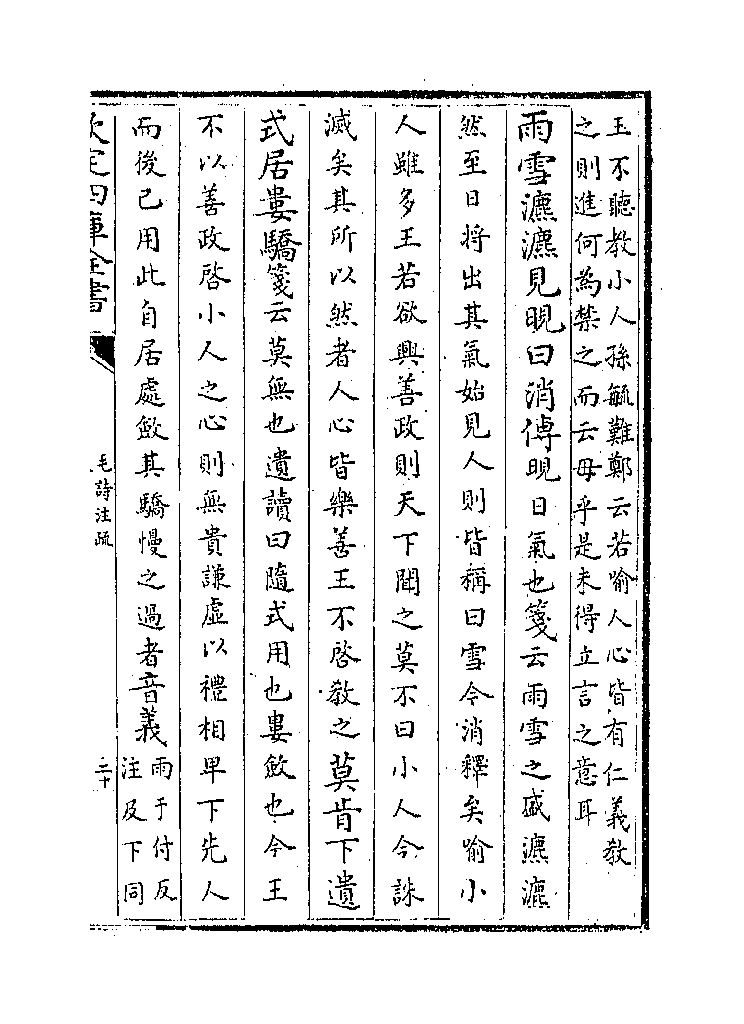 王不聽教小人孫毓難鄭云若喻人心皆有仁義教
之則進何為禁之而云毋乎是未得立言之意耳
雨雪瀌瀌見晛曰消傳晛日氣也箋云雨雪之盛瀌瀌
然至日將出其氣始見人則皆稱曰雪今消釋矣喻小
人雖多王若欲興善政則天下聞之莫不曰小人今誅
滅矣其所以然者人心皆樂善王不啓教之莫肯下遺
式居婁驕箋云莫無也遺讀曰隨式用也婁斂也今王
不以善政啓小人之心則無貴謙虛以禮相卑下先人
而後已用此自居處斂其驕慢之過者音義
雨于付反
注及下同
欽定四庫全書
毛詩注疏
二十